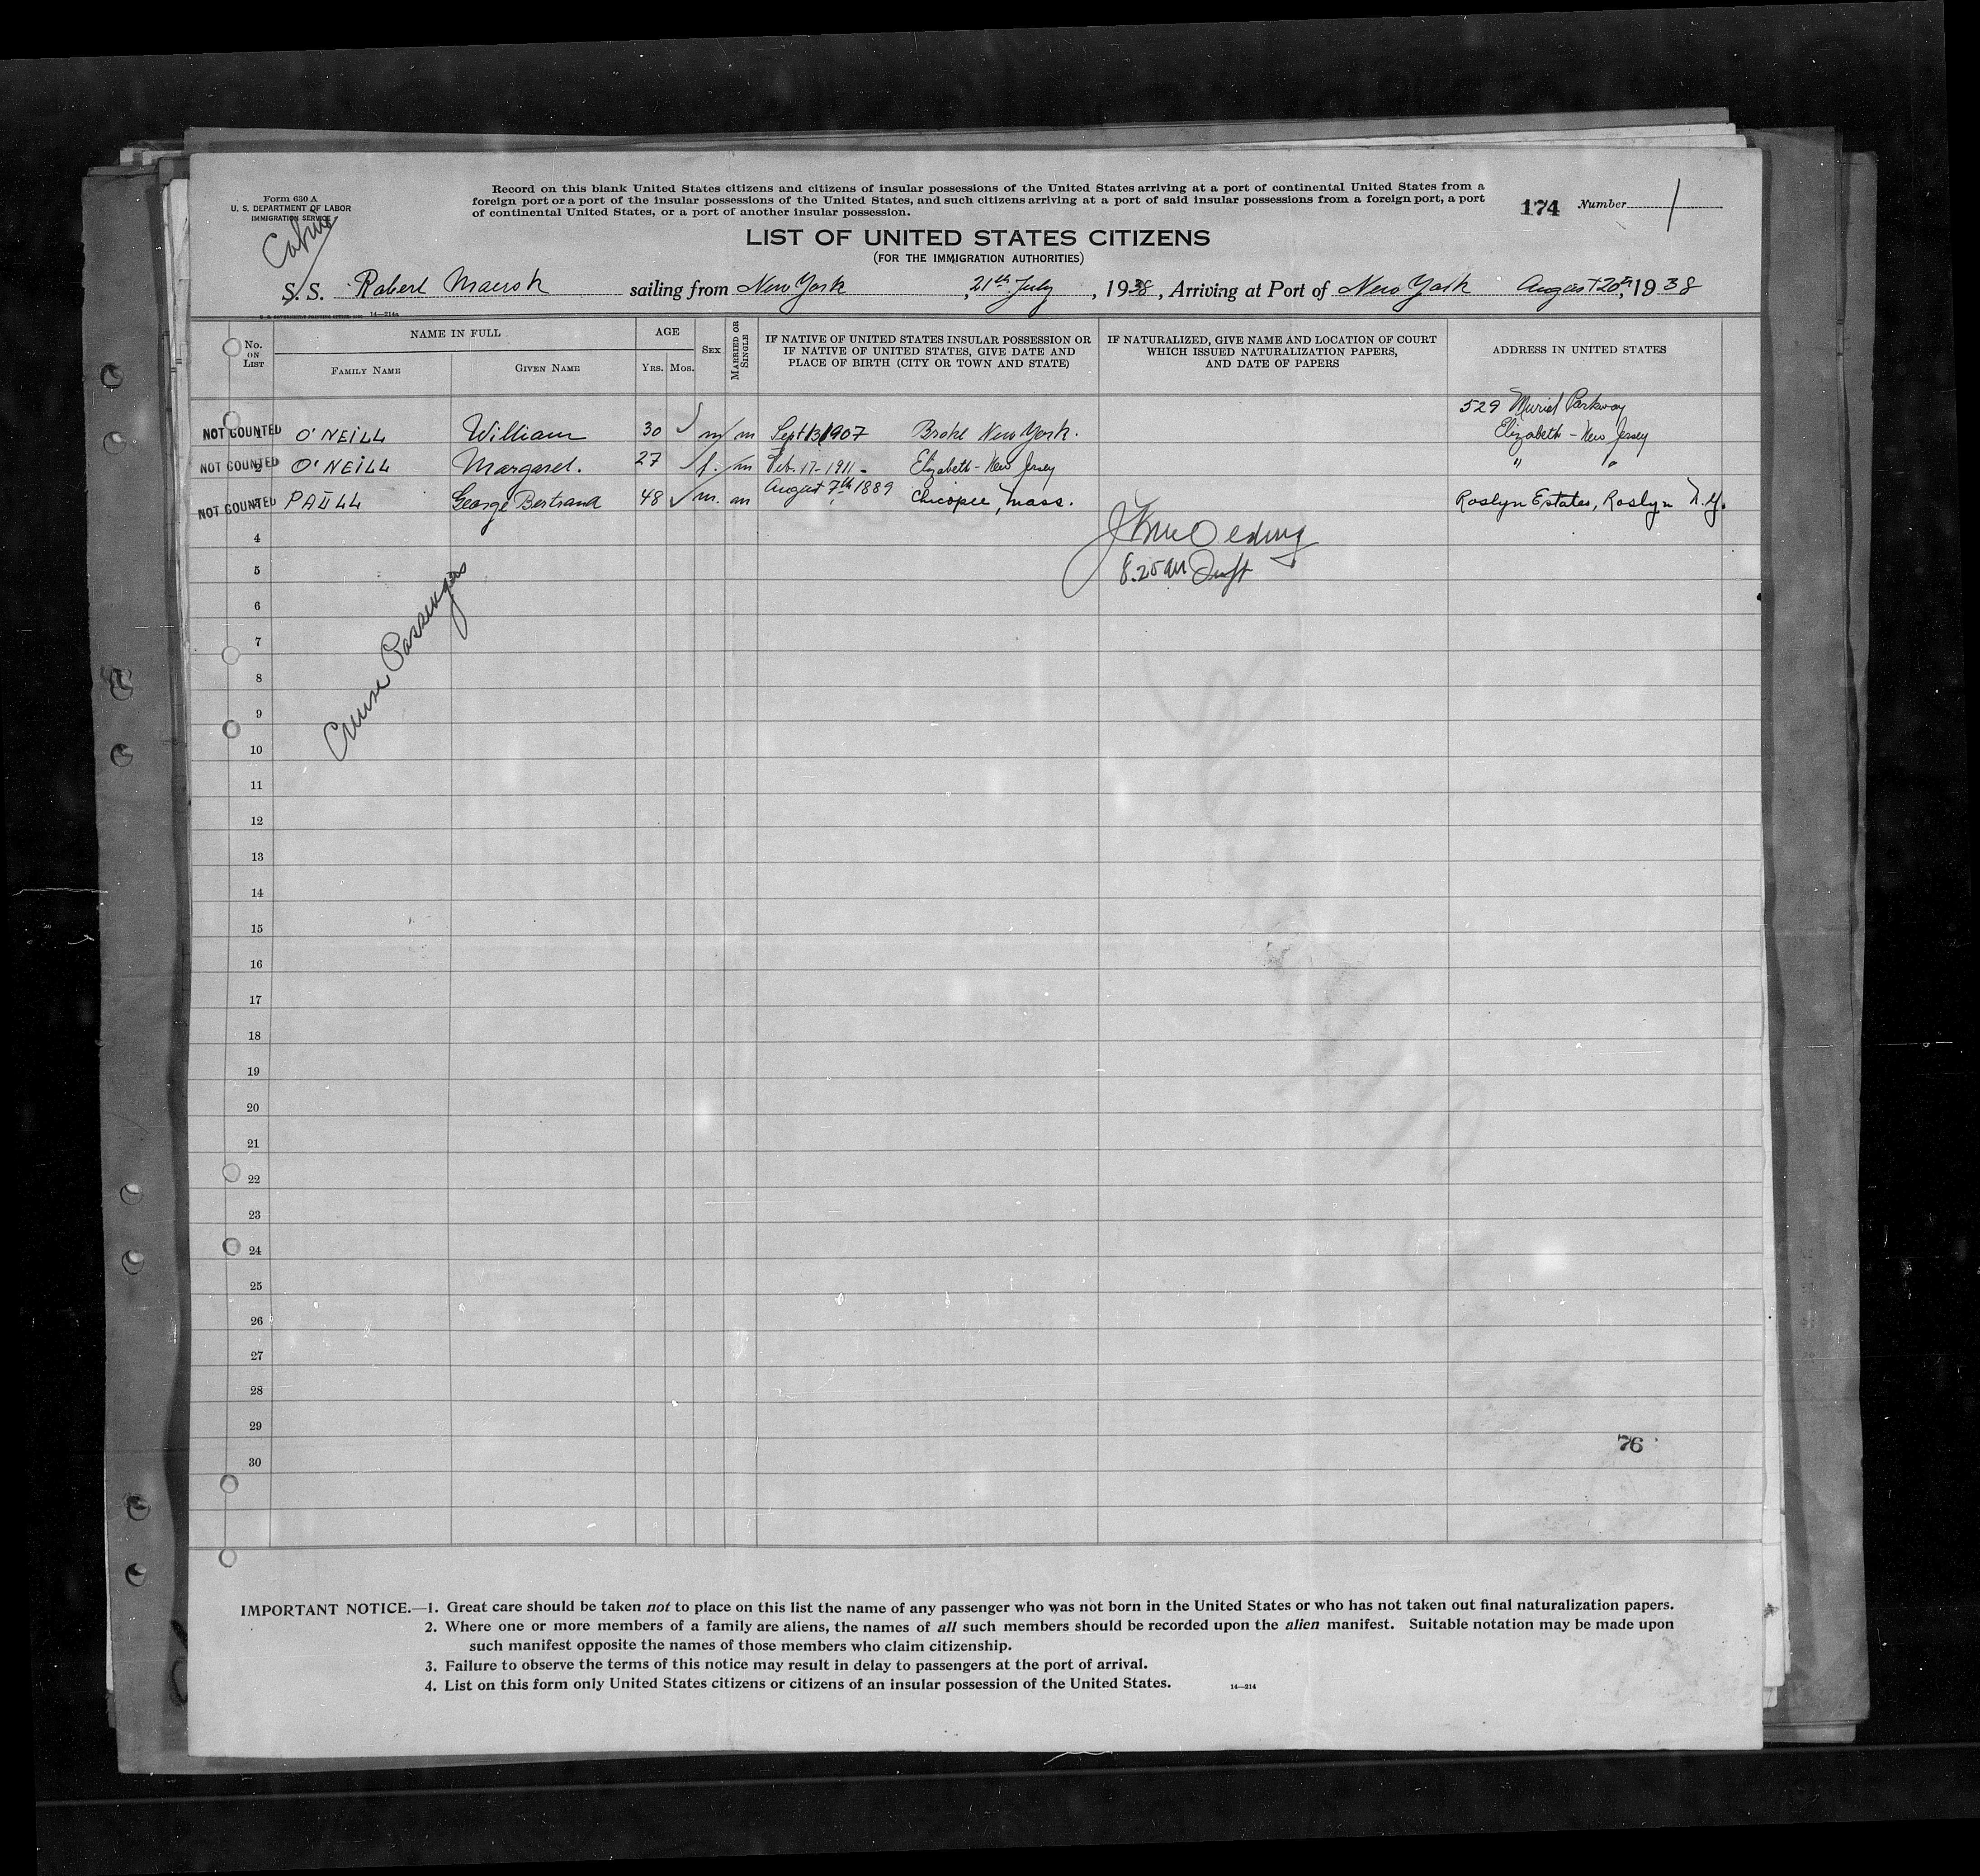 Form 630 A
U. S. DEPARTMENT OF LABOR
IMMIGRATION SERVICE
Cabin
Record on this blank United States citizens and citizens of insular possessions of the United States arriving at a port of continental United States from a
foreign port or a port of the insular possessions of the United States, and such citizens arriving at a port of said insular possessions from a foreign port, a port
of continental United States, or a port of another insular possession.
174 Number 1
LIST OF UNITED STATES CITIZENS
(FOR THE IMMIGRATION AUTHORITIES)
S. S. Robert Maersk sailing from New York, 21th July, 1938, Arriving at Port of New York August 20th, 1938
14—214a
No. ON LIST
NAME IN FULL
FAMILY NAME
GIVEN NAME
AGE
YRS. MOS.
SEX
MARRIED OR SINGLE
IF NATIVE OF UNITED STATES INSULAR POSSESSION OR
IF NATIVE OF UNITED STATES, GIVE DATE AND
PLACE OF BIRTH (CITY OR TOWN AND STATE)
IF NATURALIZED, GIVE NAME AND LOCATION OF COURT
WHICH ISSUED NATURALIZATION PAPERS,
AND DATE OF PAPERS
ADDRESS IN UNITED STATES
529 Muriel Parkway
NOT COUNTED 1 O'NEILL William 30 m m Sept 13 1907 New York. Elizabeth - New Jersey
NOT COUNTED 2 O'NEILL Margaret. 27 f. m Feb. 17-1911- Elizabeth - New Jersey " "
NOT COUNTED PAULL George Bertrand 48 m. m August 7th 1889 Chicopee, Mass. Roslyn Estates, Roslyn N.Y.
4
5 8.25 AM
6
7
8
Cruise Passengers
9
10
11
12
13
14
15
16
17
18
19
20
21
22
23
24
25
26
27
28
29
76
30
IMPORTANT NOTICE.—1. Great care should be taken not to place on this list the name of any passenger who was not born in the United States or who has not taken out final naturalization papers.
2. Where one or more members of a family are aliens, the names of all such members should be recorded upon the alien manifest. Suitable notation may be made upon
such manifest opposite the names of those members who claim citizenship.
3. Failure to observe the terms of this notice may result in delay to passengers at the port of arrival.
4. List on this form only United States citizens or citizens of an insular possession of the United States. 14—214